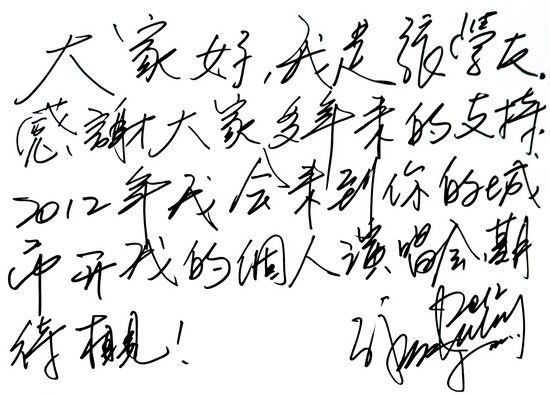 大家好,我是張學友.
感謝大家多年来的支持.
2012年我会来到你的城
市开我的個人演唱会,期
待相見!